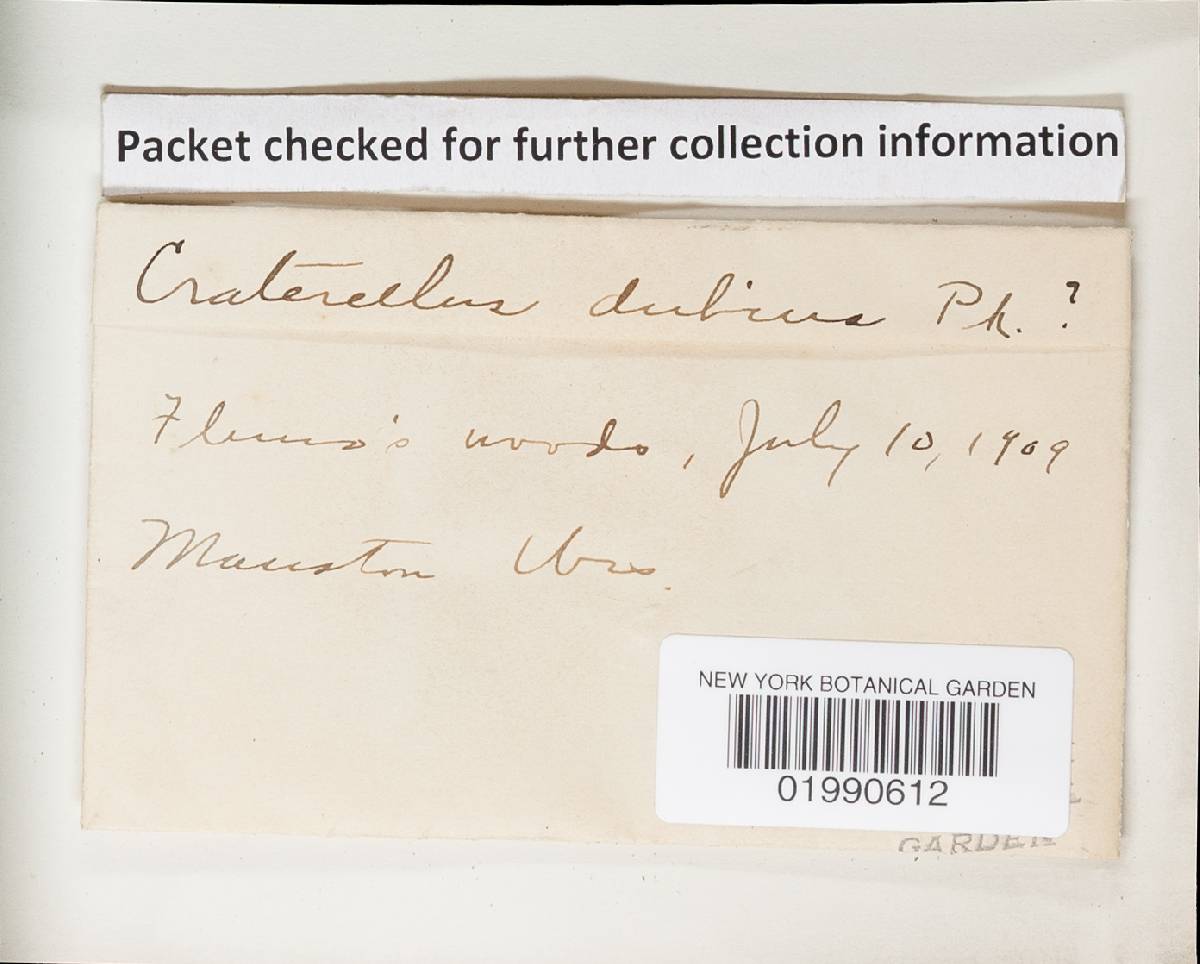 Packet checked for further collection information
Craterellus dubius Pk. ?
woods, July 10, 1909
Mauston Wis.
NEW YORK BOTANICAL GARDEN
01990612
GARDEN